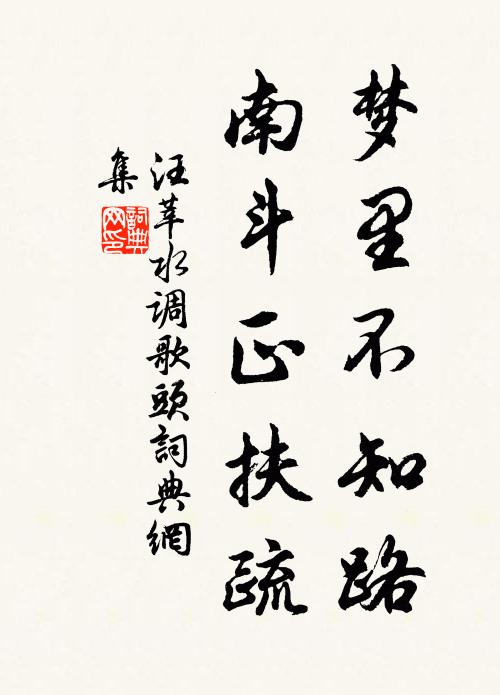 梦里不知路
南斗正扶疏
汪莘水调歌頭詞典網
集
詞典网印